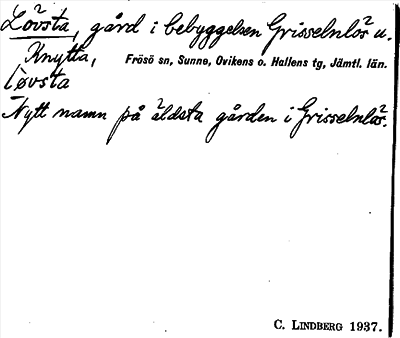 Lövsta, gård i bebyggelsen Grisselnlös u.
Knytta, Frösö sn, Sunne, Ovikens o. Hallens tg, Jämtl. län.
løvsta
Nytt namn på äldsta gården i Grisselnlös.
C. LINDBERG 1937.